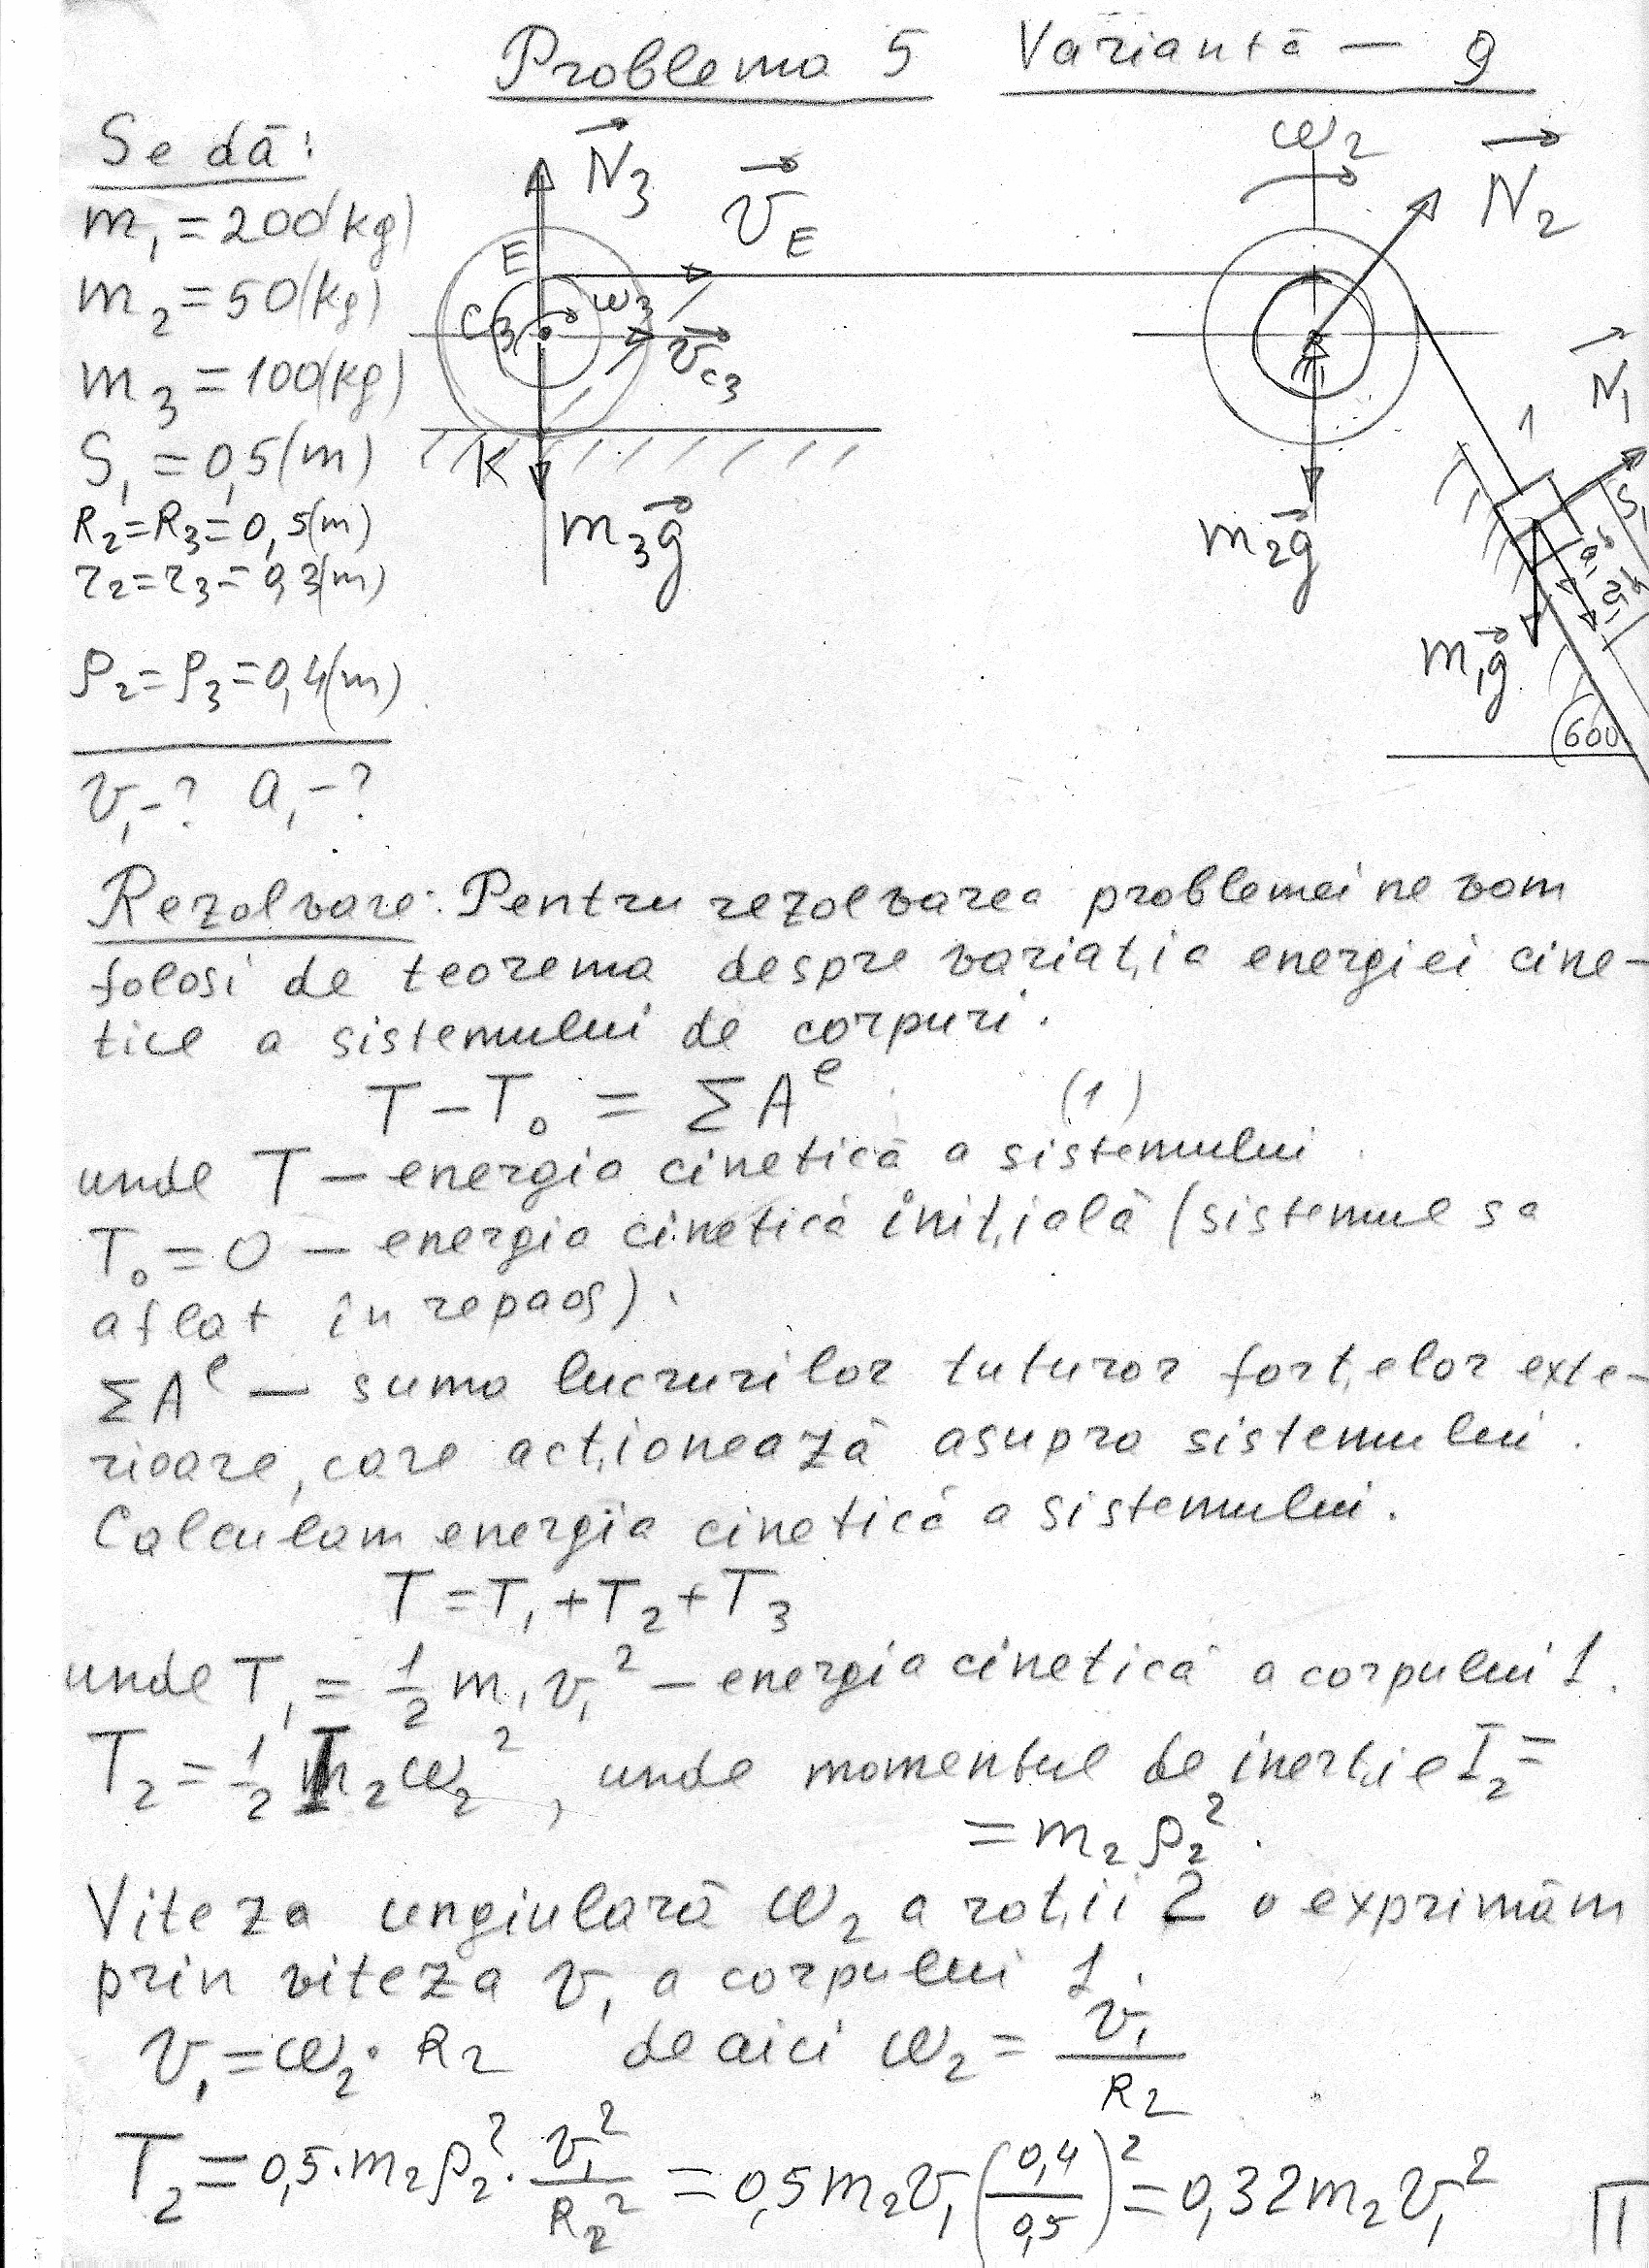 Problema 5 Variantă — 9
Se dă:
m₁ = 200(kg)
m₂ = 50(kg)
m₃ = 100(kg)
S₁ = 0,5(m)
R₂=R₃=0,5(m)
r₂=r₃=0,3(m)
ρ₂=ρ₃=0,4(m)
v₁-? a₁-?
N₃
v_E
E
C₃
ω₃
v_c₃
K
m₃g
ω₂
N₂
m₂g
N₁
1
S₁
m₁g
60°
Rezolvare: Pentru rezolvarea problemei ne vom
folosi de teorema despre variația energiei cine-
tice a sistemului de corpuri.
T – T₀ = ΣAᵉ (1)
unde T – energia cinetică a sistemului.
T₀ = 0 – energia cinetică inițială (sistemul sa
aflat în repaos).
ΣAᵉ – suma lucrurilor tuturor forțelor exte-
rioare, care acționează asupra sistemului.
Calculam energia cinetică a sistemului.
T = T₁ + T₂ + T₃
unde T₁ = 1/2 m₁v₁² – energia cinetică a corpului 1.
T₂ = 1/2 I₂ω₂², unde momentul de inerție I₂ =
= m₂ρ₂².
Viteza ungiulară ω₂ a roții 2 o exprimăm
prin viteza v₁ a corpului 1.
v₁ = ω₂· R₂ de aici ω₂ = v₁/R₂
T₂ = 0,5·m₂ρ₂²· v₁²/R₂² = 0,5m₂v₁(0,4/0,5)² = 0,32m₂v₁²